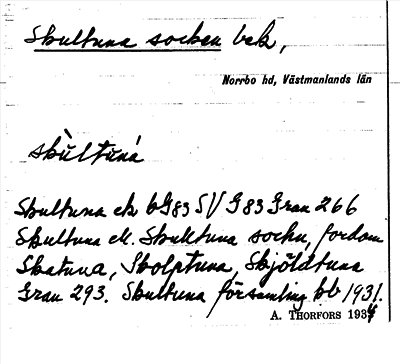 Skultuna socken bek,
Norrbo hd, Västmanlands län
skùltuná
Skultuna ek bG83 SV G83 Gran 266
Skultuna ell. Skulltuna sochn, fordom
Skatuna, Skolptuna, Skjöldtuna
Gran 293. Skultuna församling kb 1931.
A. THORFORS 1934